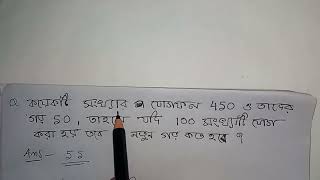 Q কয়েকটি সংখ্যার যোগফল 450 ও তাদের
গড় 50, তাহলে যদি 100 সংখ্যাটি যোগ
করা হয় তবে নতুন গড় কত হবে ?
Ans - 55